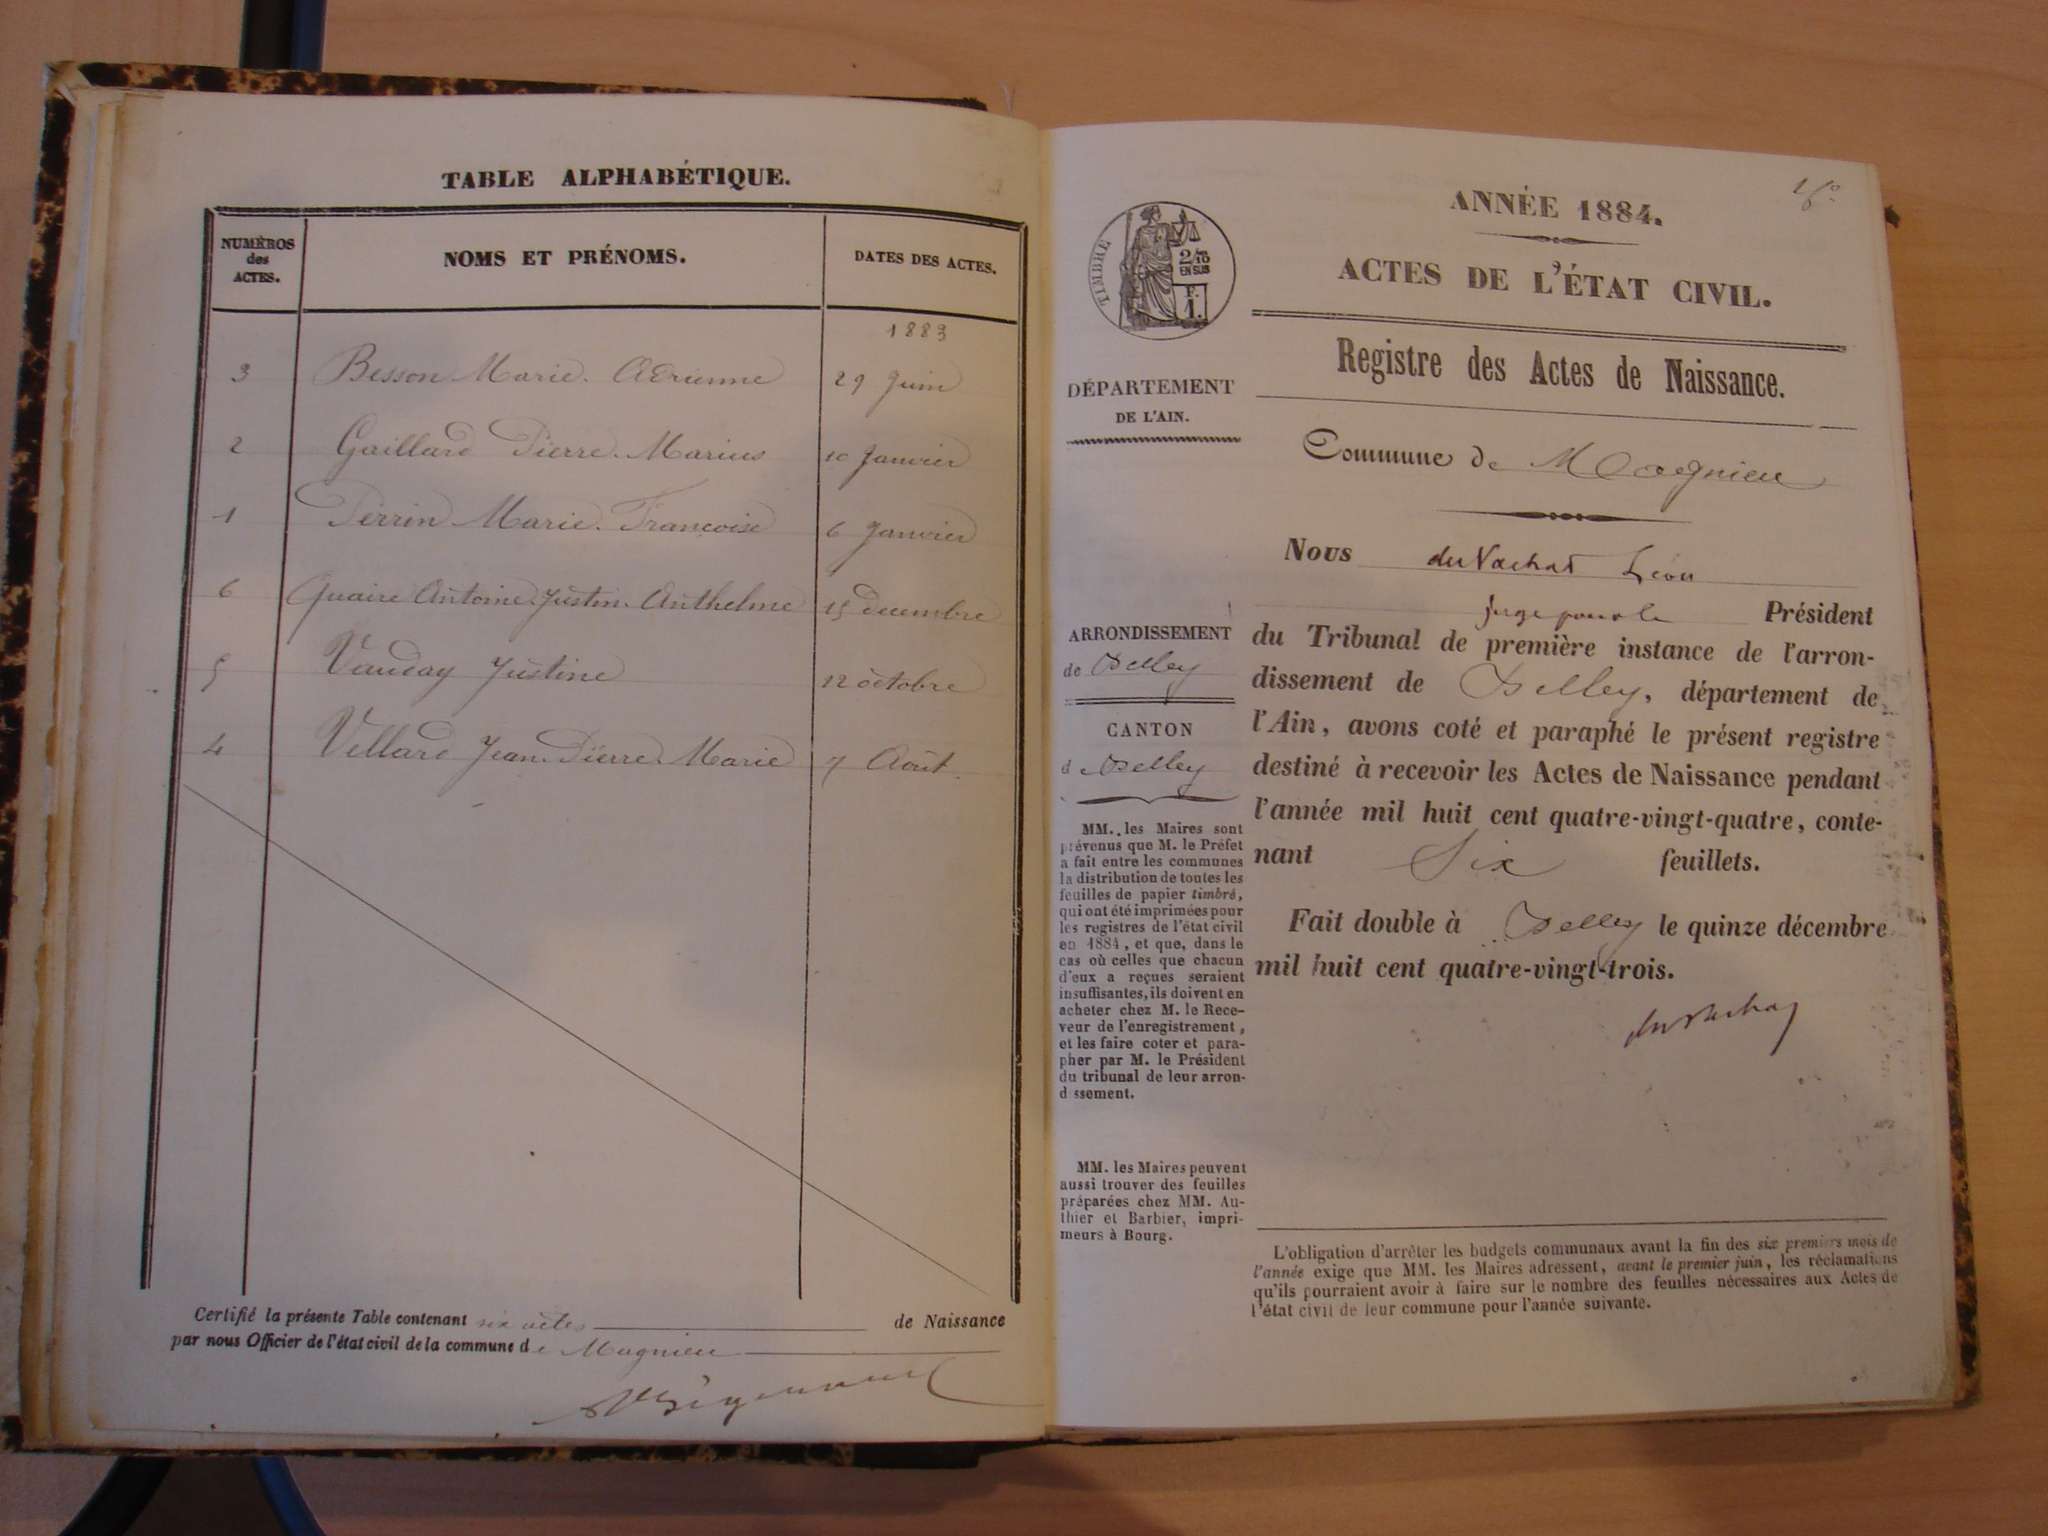 TABLE ALPHABÉTIQUE.
NUMÉROS des ACTES. NOMS ET PRÉNOMS. DATES DES ACTES.
1883
3 Besson Marie Adrienne 29 Juin
2 Gaillard Pierre Marius 10 Janvier
1 Perrin Marie Françoise 6 Janvier
6 Quaire Antoine Justin Anthelme 15 decembre
5 Vauday Justine 12 octobre
4 Vellard Jean Pierre Marie 7 Août
Certifié la présente Table contenant six actes de Naissance
par nous Officier de l'état civil de la commune de Magnieu
ANNÉE 1884.
ACTES DE L'ÉTAT CIVIL.
TIMBRE
2/10
EN SUS
F.
1.
Registre des Actes de Naissance.
DÉPARTEMENT
DE L'AIN.
Commune de Magnieu
Nous du Vachat Léon
juge pour le Président
du Tribunal de première instance de l'arron-
dissement de Belley, département de
l'Ain, avons coté et paraphé le présent registre
destiné à recevoir les Actes de Naissance pendant
l'année mil huit cent quatre-vingt-quatre, conte-
nant Six feuillets.
Fait double à Belley le quinze décembre
mil huit cent quatre-vingt-trois.
du Vachat
ARRONDISSEMENT
de Belley
CANTON
d Belley
MM. les Maires sont
prévenus que M. le Préfet
a fait entre les communes
la distribution de toutes les
feuilles de papier timbré,
qui ont été imprimées pour
les registres de l'état civil
en 1884, et que, dans le
cas où celles que chacun
d'eux a reçues seraient
insuffisantes, ils doivent en
acheter chez M. le Rece-
veur de l'enregistrement,
et les faire coter et para-
pher par M. le Président
du tribunal de leur arron-
d ssement.
MM. les Maires peuvent
aussi trouver des feuilles
préparées chez MM. Au-
thier et Barbier, impri-
meurs à Bourg.
L'obligation d'arrêter les budgets communaux avant la fin des six premiers mois de
l'année exige que MM. les Maires adressent, avant le premier juin, les réclamations
qu'ils pourraient avoir à faire sur le nombre des feuilles nécessaires aux Actes de
l'état civil de leur commune pour l'année suivante.